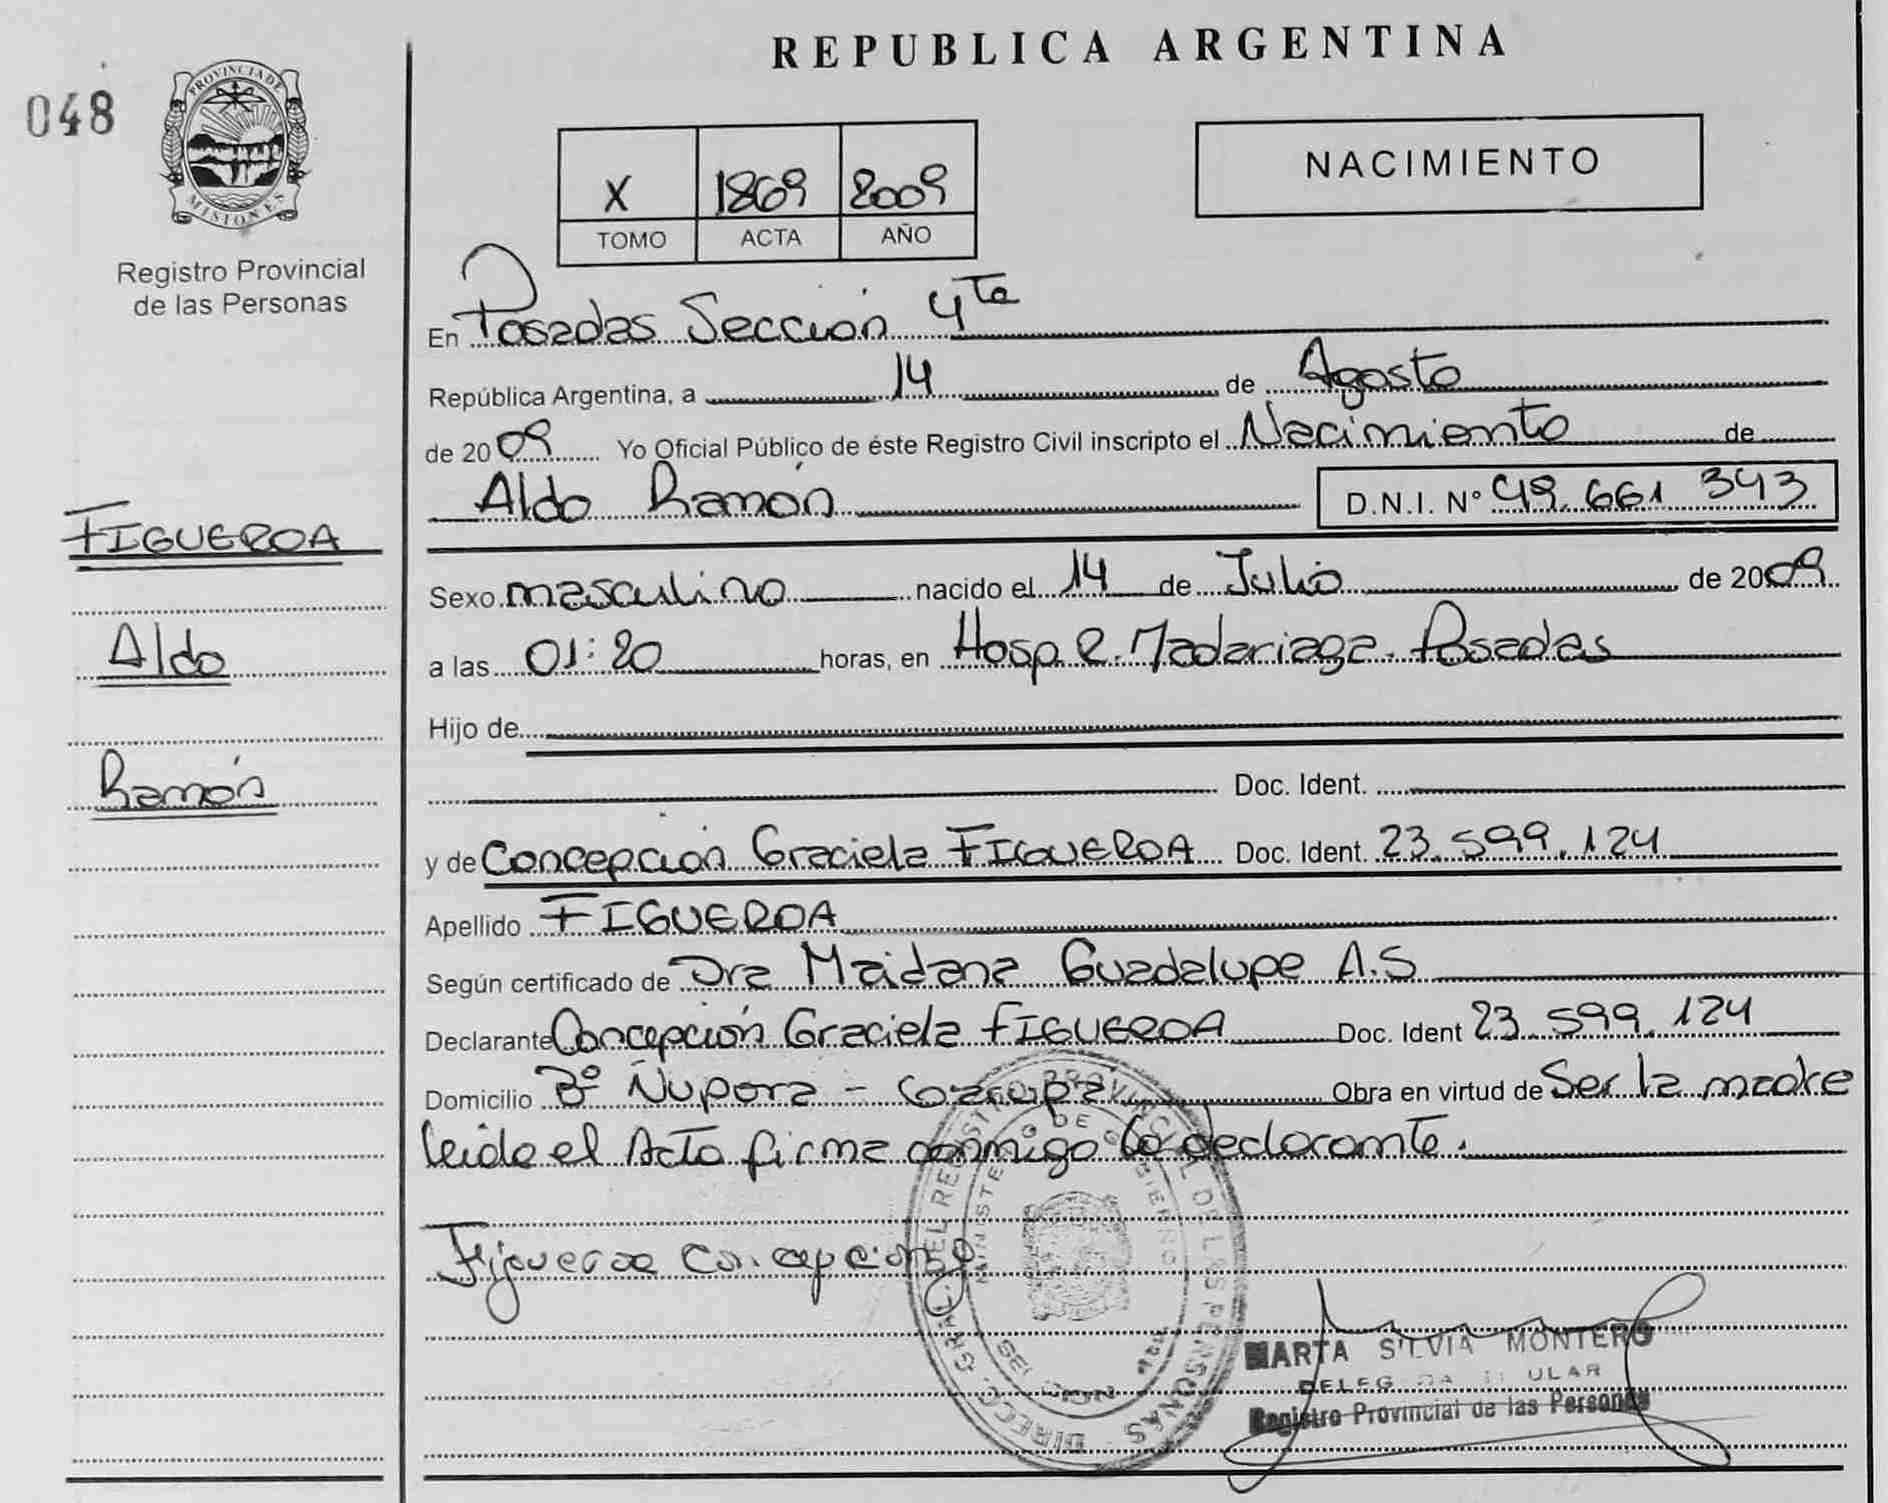 REPUBLICA ARGENTINA
048
PROVINCIA DE
MISIONES
Registro Provincial
de las Personas
X 1869 2009
TOMO ACTA AÑO
NACIMIENTO
En Posadas Sección 4ta
República Argentina, a 14 de Agosto
de 2009 Yo Oficial Público de éste Registro Civil inscripto el Nacimiento de
Aldo Ramón D.N.I. Nº 49.661 343
FIGUEROA
Aldo
Ramón
Sexo masculino nacido el 14 de Julio de 2009
a las 01:20 horas, en Hosp. R. Madariaga. Posadas
Hijo de
Doc. Ident.
y de Concepción Graciela FIGUEROA Doc. Ident. 23.599.124
Apellido FIGUEROA
Según certificado de Dra Maidana Guadalupe A.S
Declarante Concepción Graciela FIGUEROA Doc. Ident 23.599.124
Domicilio Bº Ñupora - Garupa Obra en virtud de Ser la madre
leida el Acta firma conmigo la declarante.
Figueroa Concepcion G
DIRECC. GRAL. DEL REGISTRO PROVINCIAL DE LAS PERSONAS
MINISTERIO DE GOBIERNO
MARTA SILVIA MONTERO
Registro Provincial de las Personas